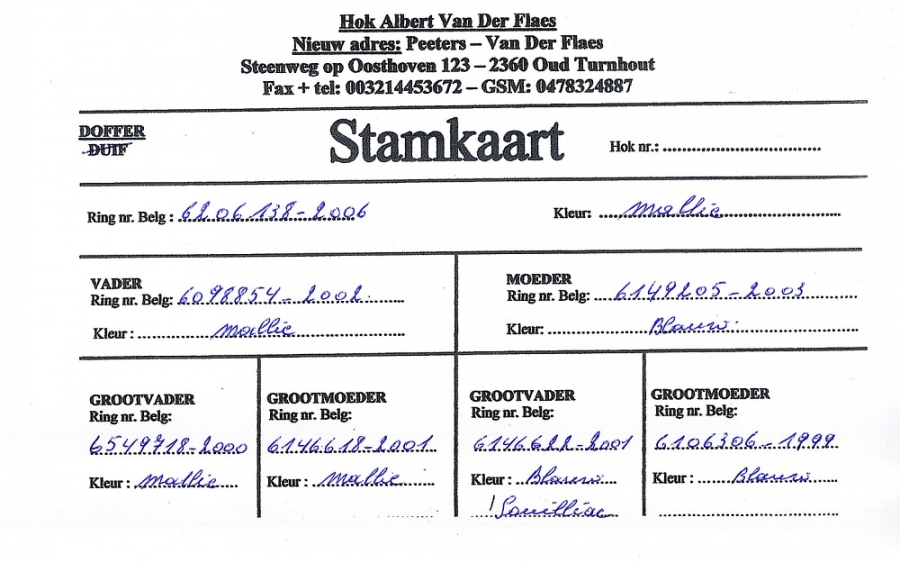 Hok Albert Van Der Flaes
Nieuw adres: Peeters – Van Der Flaes
Steenweg op Oosthoven 123 – 2360 Oud Turnhout
Fax + tel: 003214453672 – GSM: 0478324887
DOFFER
DUIF
Stamkaart
Hok nr.: ..............................
Ring nr. Belg : 6206138-2006
Kleur: Mallie
VADER
Ring nr. Belg: 6098854-2002.
Kleur : Mallie
MOEDER
Ring nr. Belg: 6149205-2003
Kleur: Blauw.
GROOTVADER
Ring nr. Belg:
6549718-2000
Kleur : Mallie
GROOTMOEDER
Ring nr. Belg:
6146618-2001
Kleur : Mallie
GROOTVADER
Ring nr. Belg:
6146622-2001
Kleur : Blauw
Souilliac
GROOTMOEDER
Ring nr. Belg:
6106306-1999
Kleur : Blauw